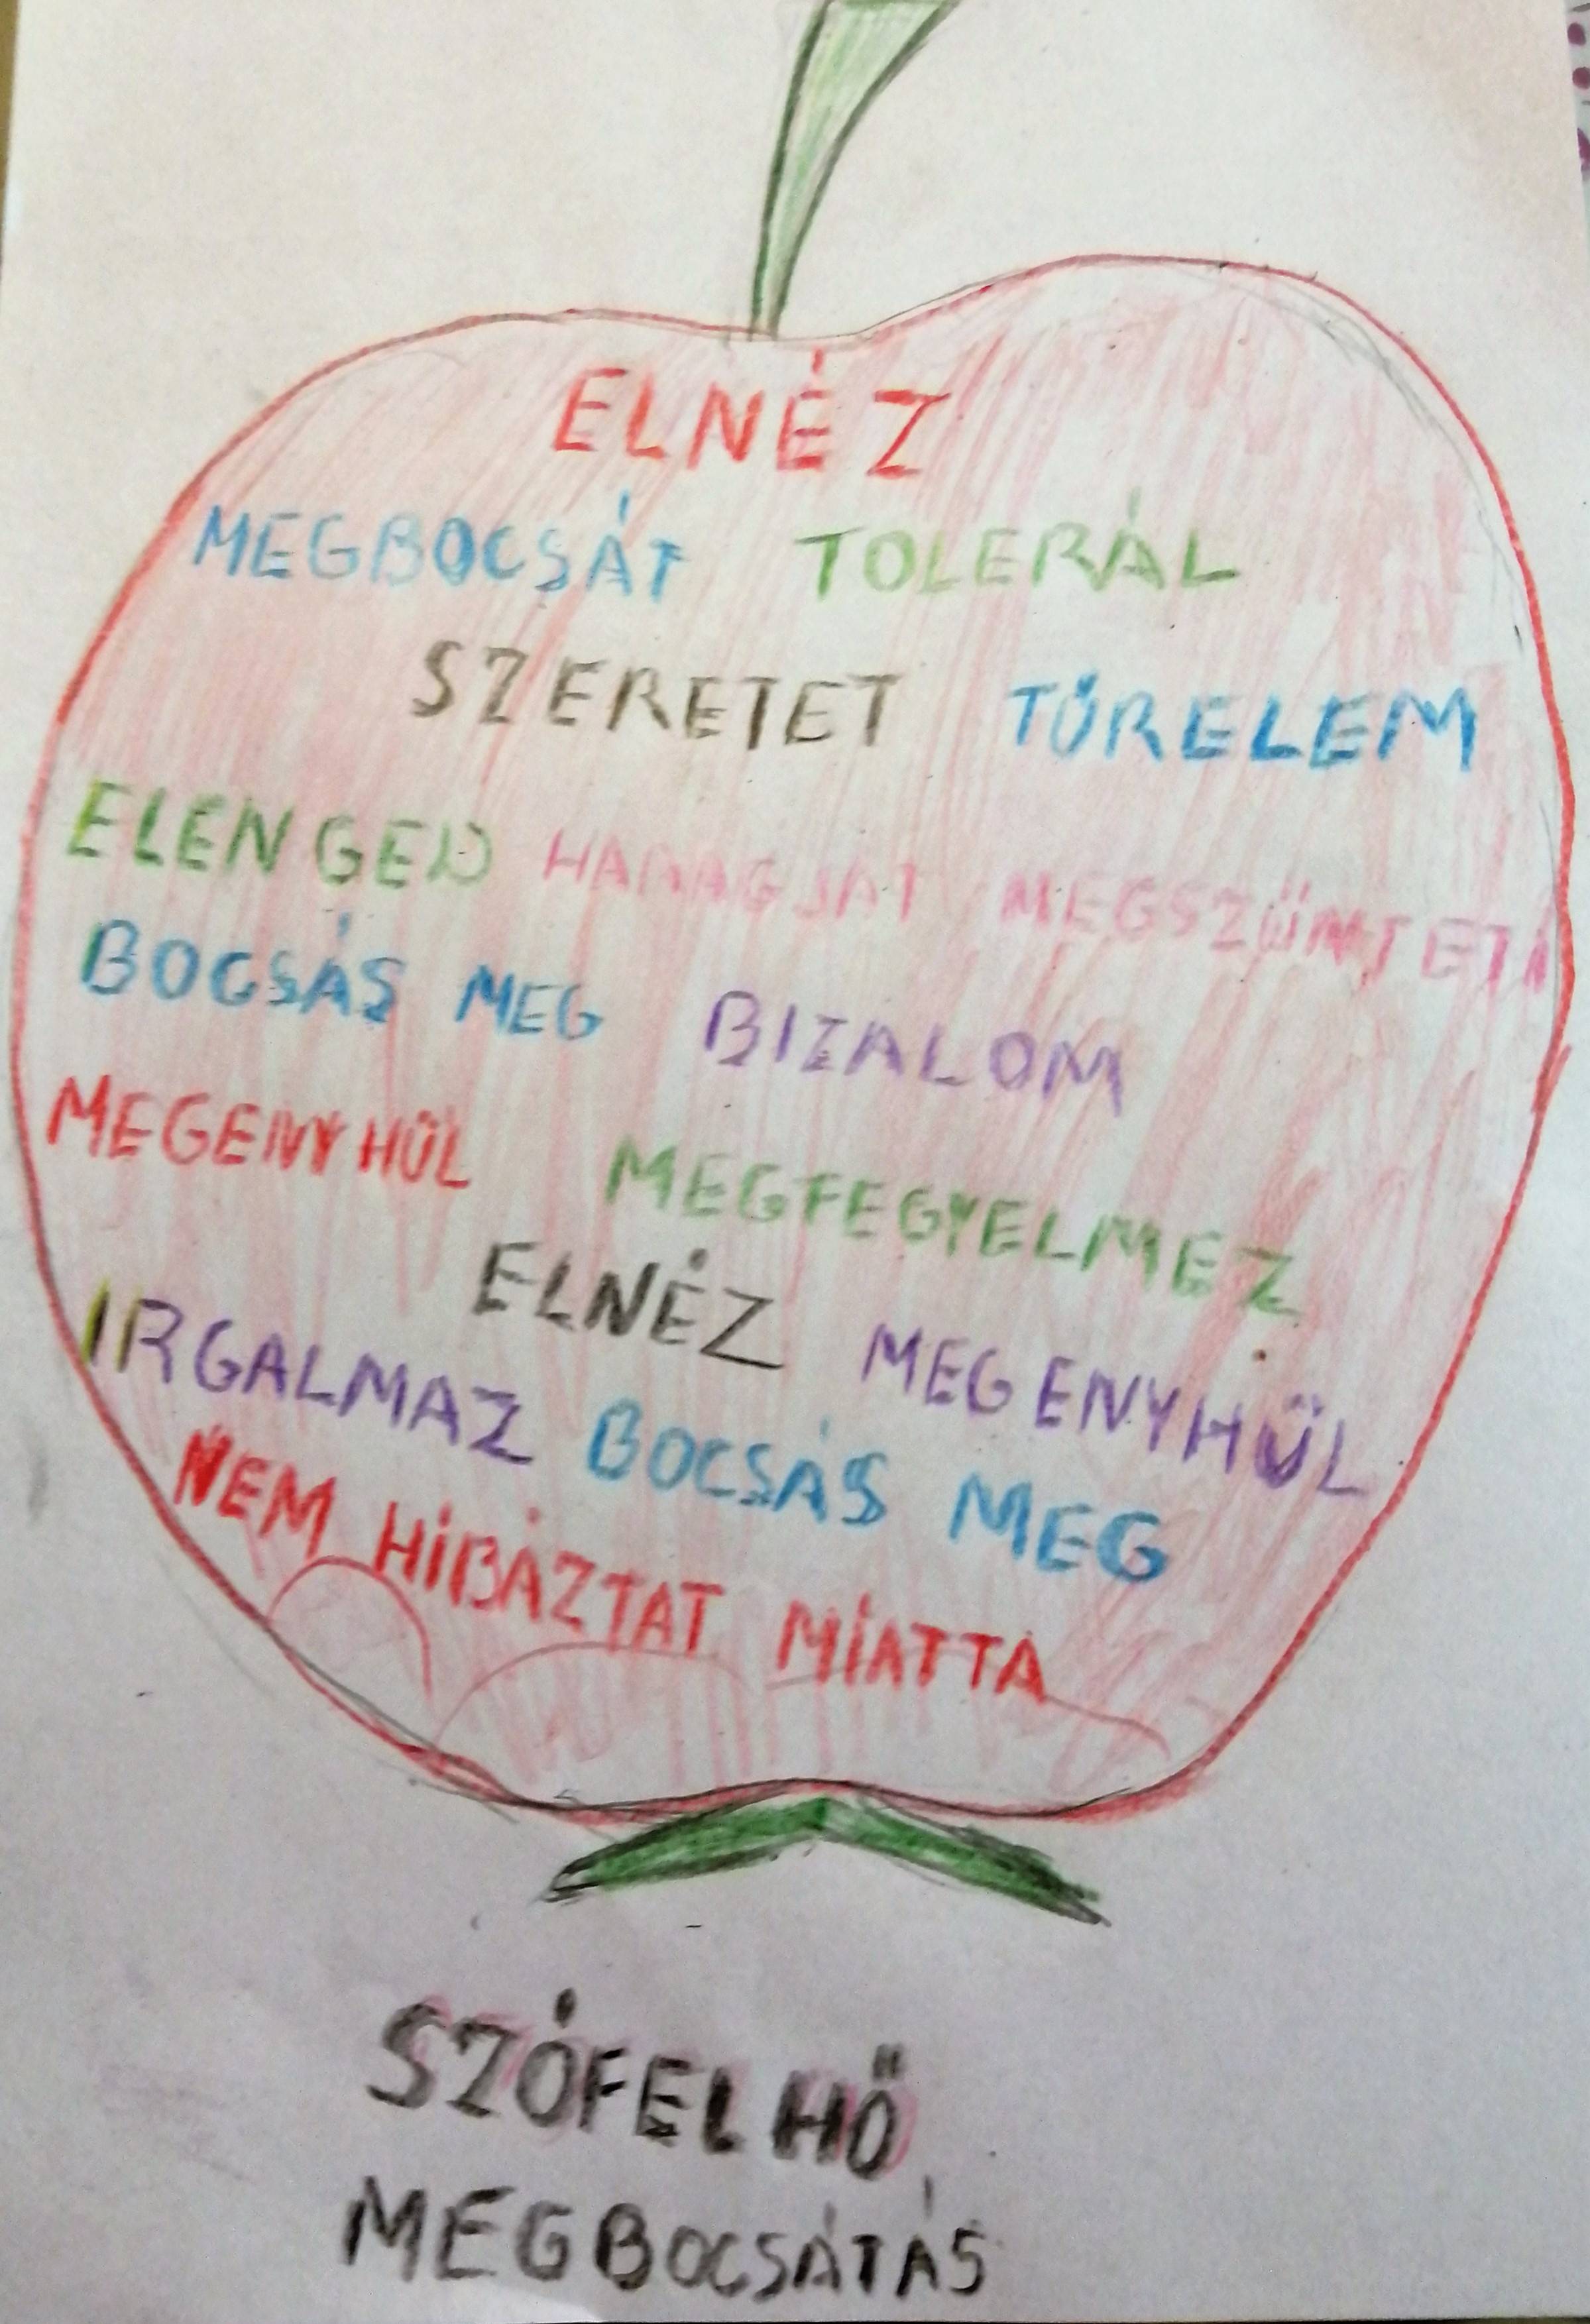 ELNÉZ
MEGBOCSÁT TOLERÁL
SZERETET TÜRELEM
ELENGED HARAGJÁT MEGSZÜNTETI
BOCSÁS MEG BIZALOM
MEGENYHÜL MEGFEGYELMEZ
ELNÉZ MEGENYHÜL
IRGALMAZ BOCSÁS MEG
NEM HIBÁZTAT MIATTA
SZÓFELHŐ
MEGBOCSÁTÁS